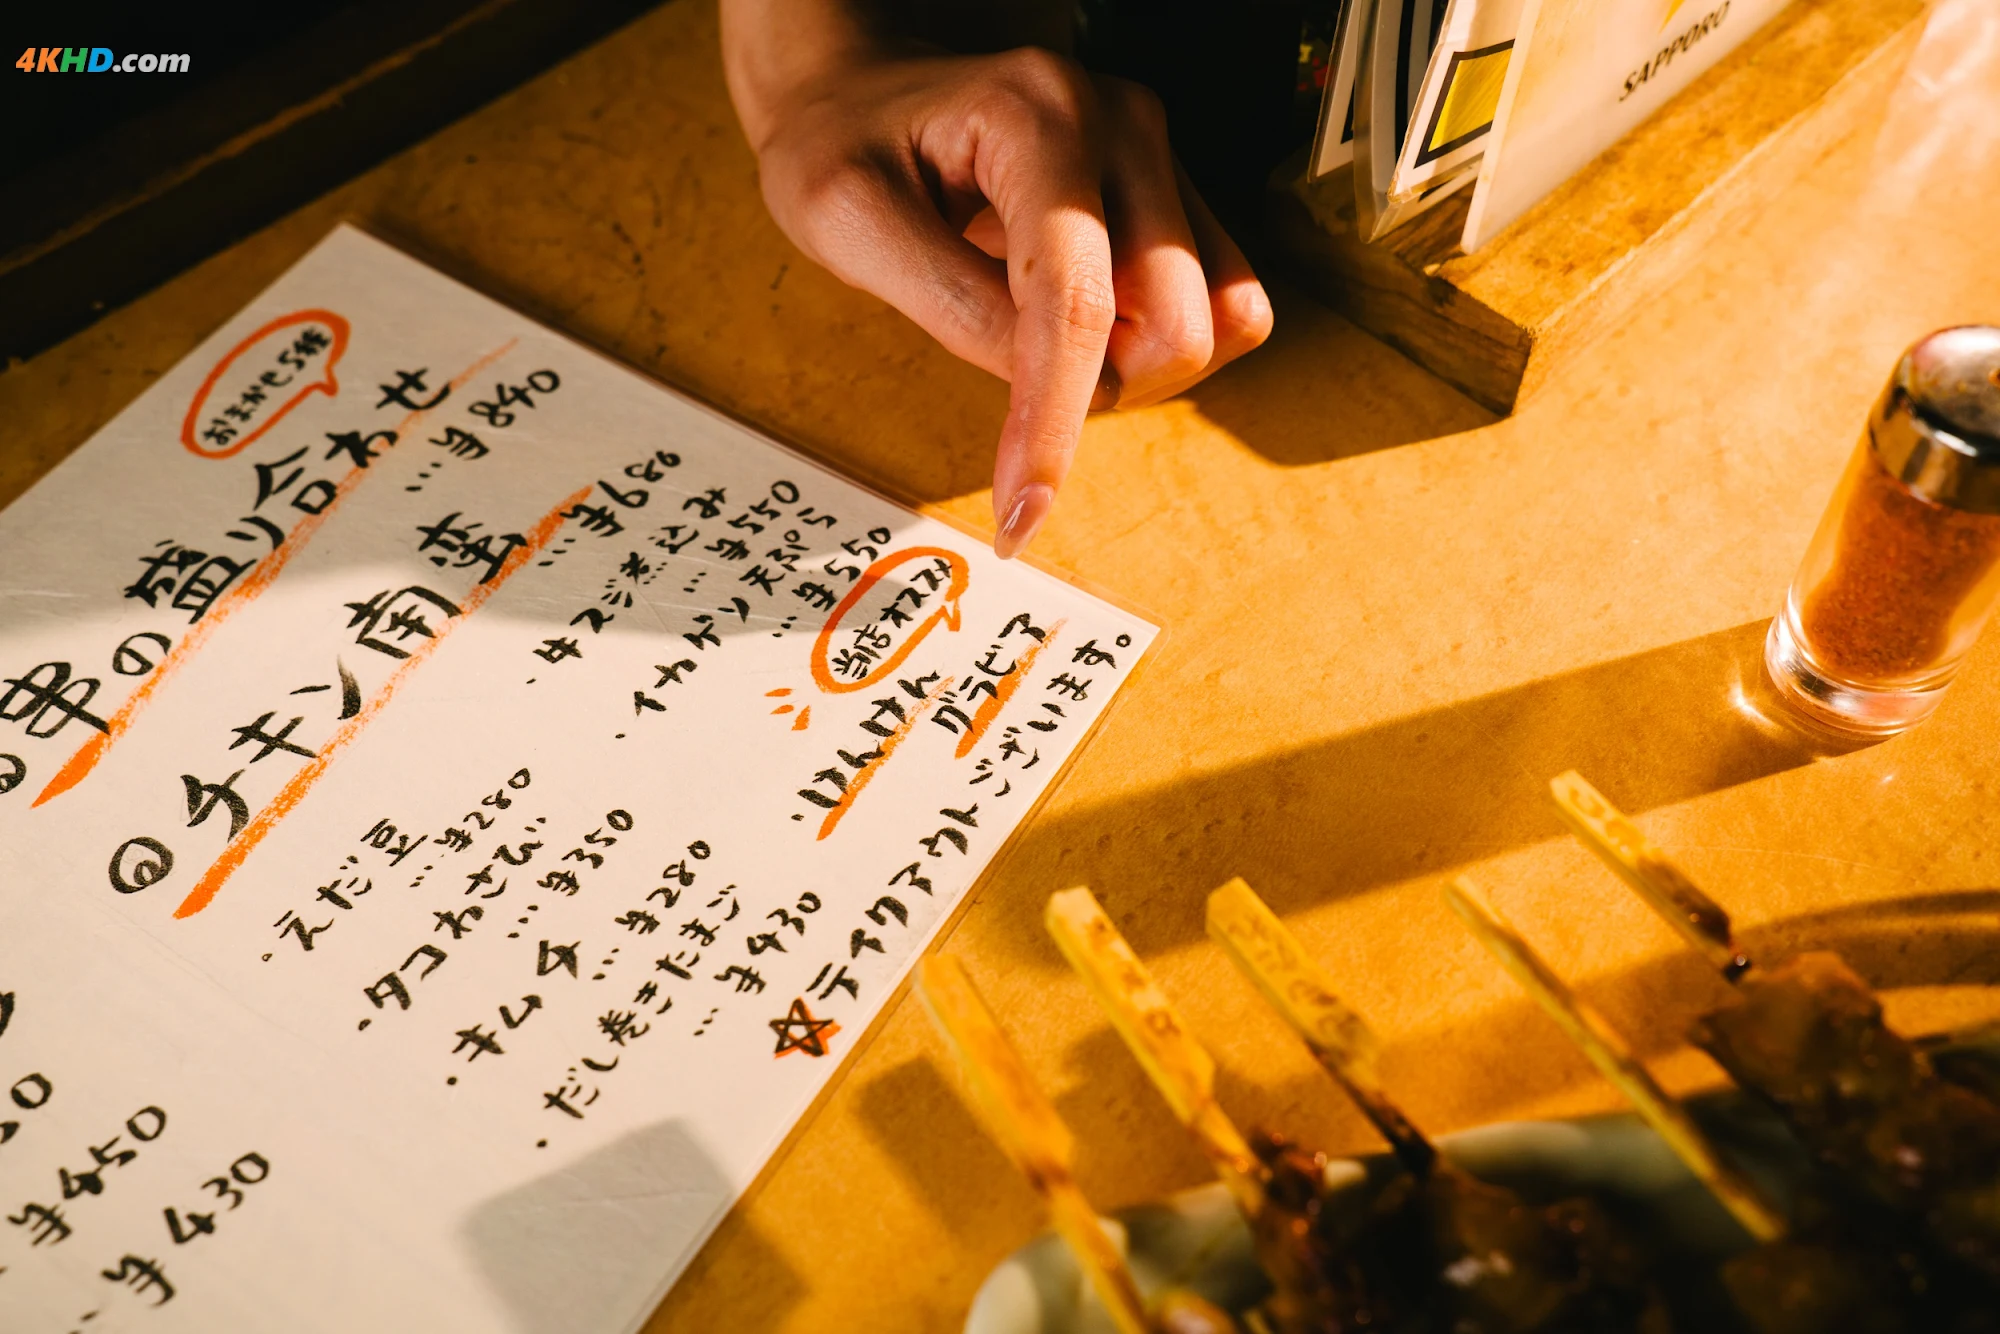 4KHD.com
SAPPORO
おまかせ5種
@串の盛り合わせ
…¥840
@チキン南蛮
…¥680
・牛スジ煮込み
…¥550
・イカゲソ天ぷら
…¥550
当店オススメ
・けんけん
グラビア
・えだ豆
…¥280
・タコわさび
…¥350
・キムチ
…¥280
・だし巻きたまご
…¥430
☆テイクアウトございます。
¥450
¥430